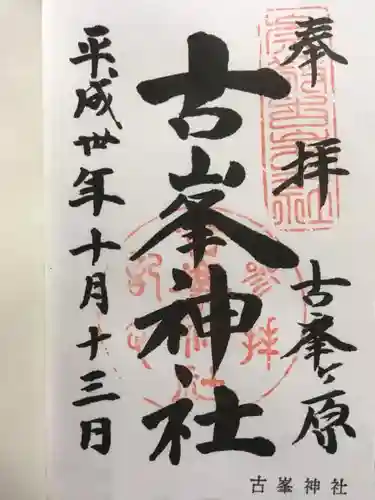 奉拝
古峯ヶ原
古峯神社
平成卅年十月十三日
古峯神社